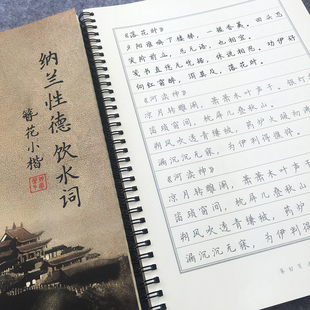 纳兰性德饮水词
簪花小楷
《落花时》
夕阳谁唤下楼梯，一握香荑。回头忍
笑阶前立，总无语，也相宜。
笺书直恁无凭据，休说相思。劝伊好
向红窗醉，须莫及，落花时。
《河渎神》
凉月转雕阑，萧萧木叶声干。银灯
笛琐窗间，枕屏几叠秋山。
朔风吹透青缣被，药炉火暖初沸
漏沉沉无寐，为伊判得憔悴。
《河渎神》
凉月转雕阑，萧萧木叶声干
笛琐窗间，枕屏几叠秋山。
朔风吹透青缣被，药炉
漏沉沉无寐，为伊判得